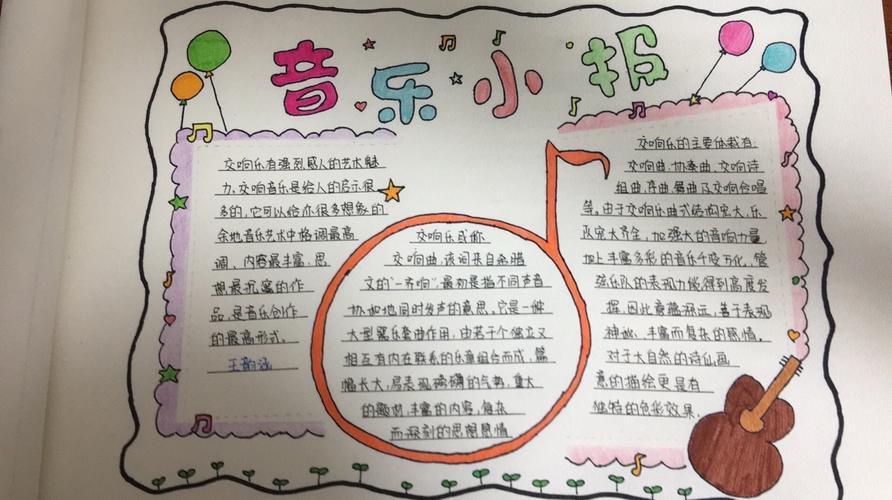 音乐小报
交响乐有强烈感人的艺术魅
力,交响音乐是给人的启示很
多的,它可以给你很多想象的
余地音乐艺术中格调最高
调、内容最丰富、思
想最充蜜的作
品,是音乐创作
的最高形式。
王韵涵
交响乐或称
交响曲,该词来自希腊
文的“一齐响”,最初是指不同声音
协和地同时发声的意思。它是一种
大型器乐套曲作用,由若干个独立又
相互有内在联系的乐章组合而成,篇
幅长大,易表现磅礴的气势,重大
的题材,丰富的内容,复杂
而深刻的思想感情
交响乐的主要体裁有
交响曲、协奏曲、交响诗
组曲、序曲、舞曲及交响合唱
等。由于交响乐曲式结构宏大,乐
队宏大齐全,加强大的音响力量
加上丰富多彩的音乐千变万化,管
弦乐队的表现力能得到高度发
挥,因此意蕴深远,善于表现
神秘、丰富而复杂的感情。
对于大自然的诗仙画
意的描绘更是有
独特的色彩效果。